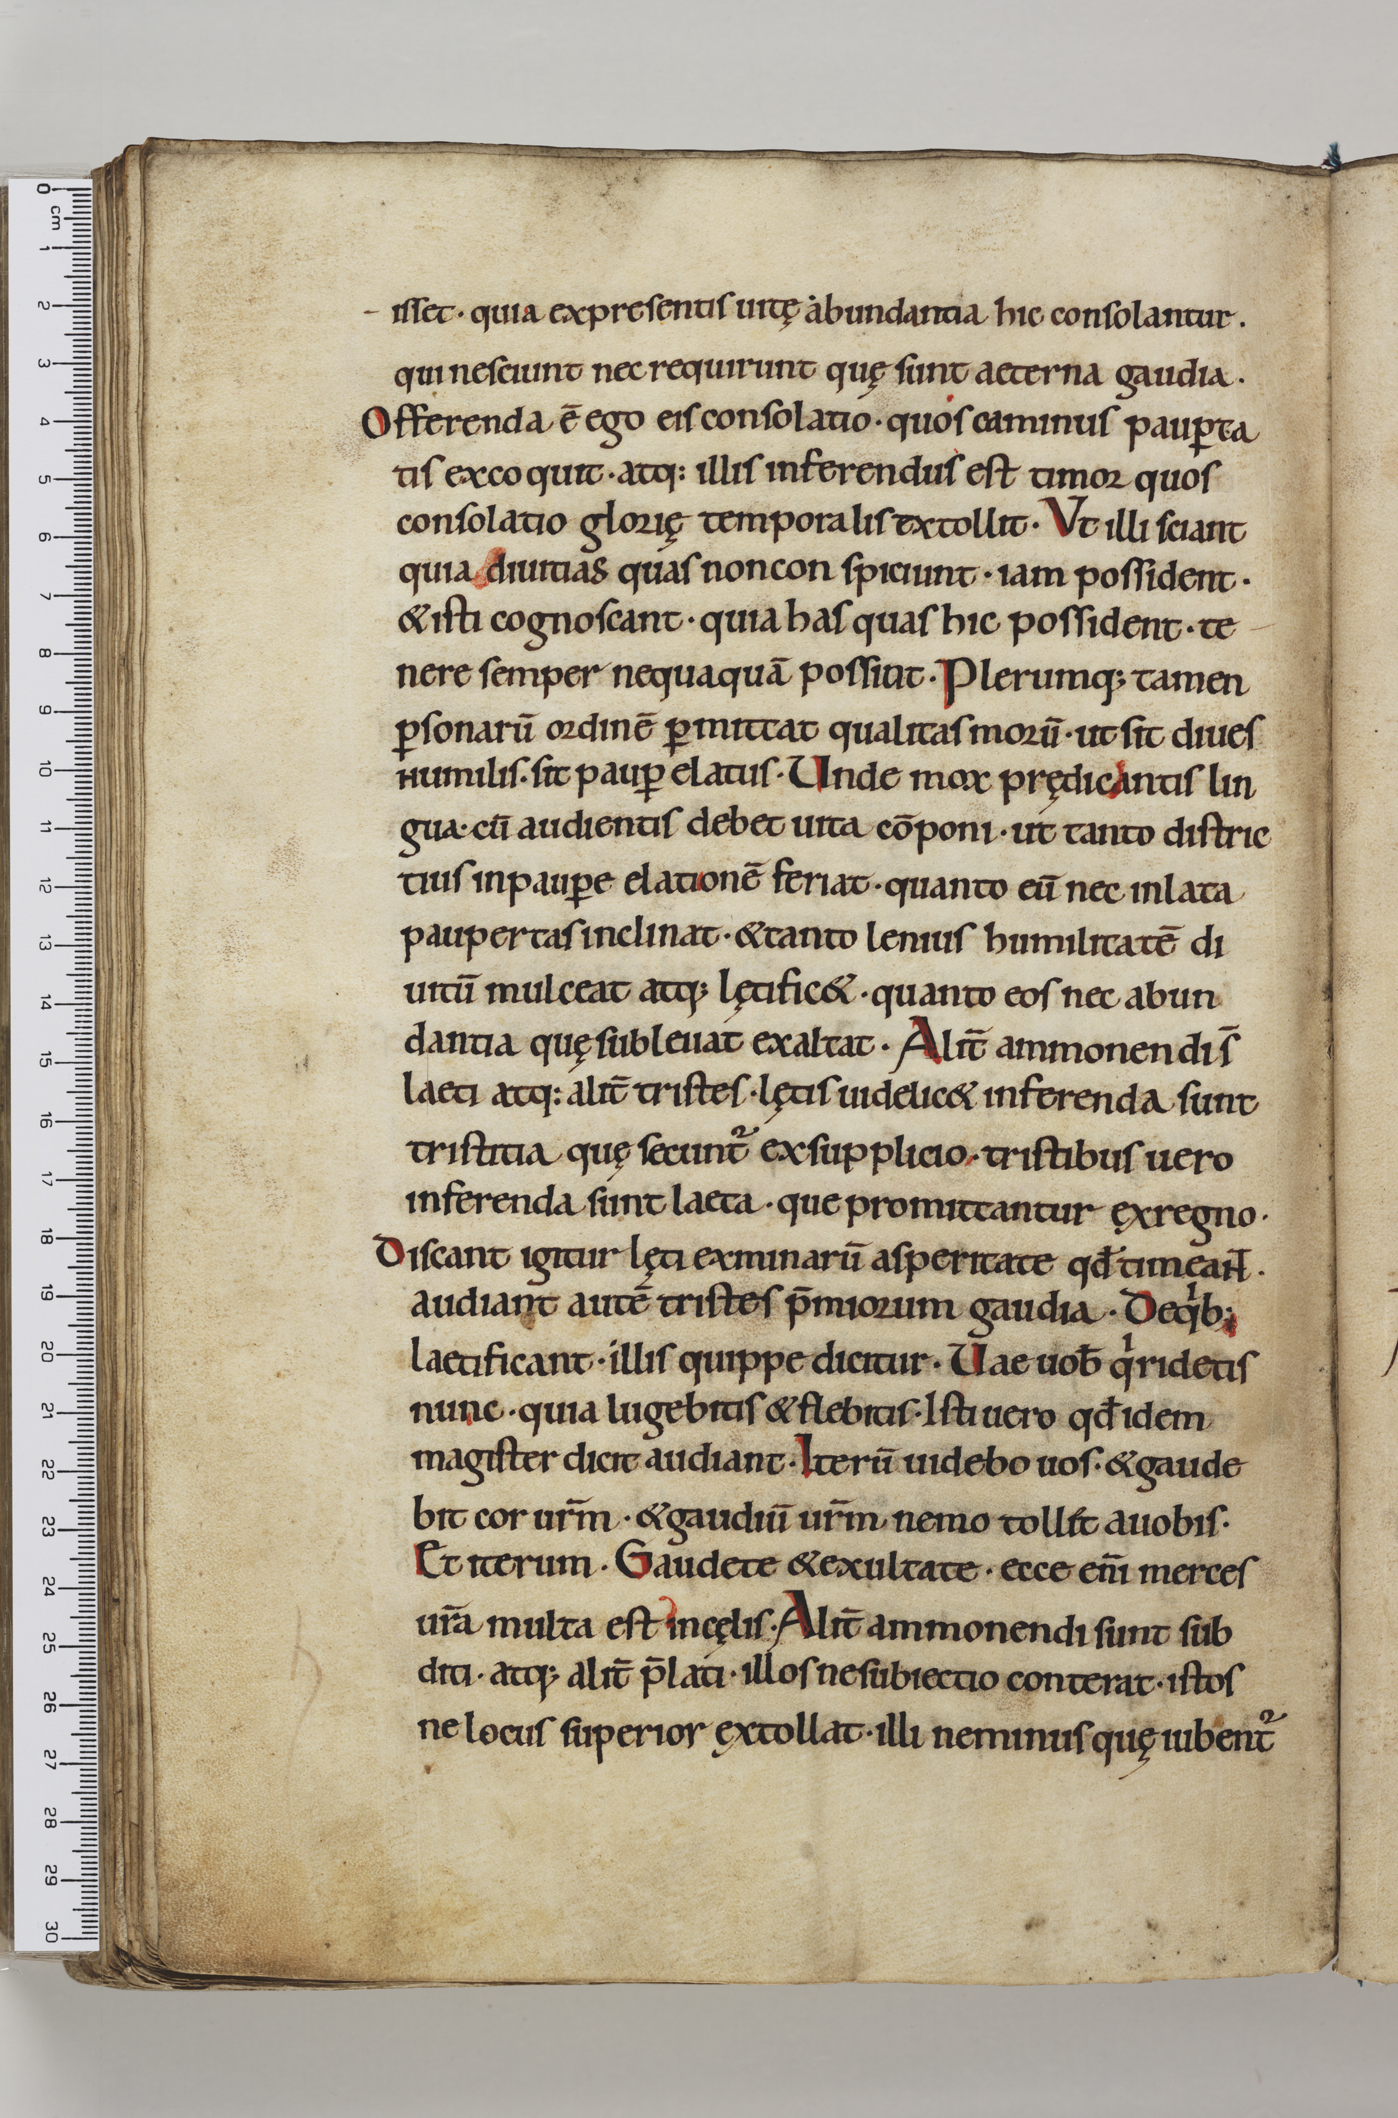 isset · quia expresentis uitę abundantia hic consolantur .
qui nesciunt nec requirunt quę sunt aeterna gaudia ·
Offerenda ē ego eis consolatio · quos caminus paup̱ta
tis excoquit · atq: illis inferendus est timor quos
consolatio glorię temporalis extollit · Vt illi sciant
quia diuitias quas non conspiciunt · iam possident ·
& isti cognoscant · quia has quas hic possident · te
nere semper nequaquā possint · Plerumq; tamen
p̱sonarū ordinē p̱mittat qualitas morū · ut sit diues
humilis · sit paup̱ elatus · Unde mox prędicantis lin
gua · cū audientis debet uita cōponi · ut tanto distric
tius inpaup̱e elationē feriat · quanto eū nec inlata
paupertas inclinat · & tanto lenius humilitatē di
uitū mulceat atq; lętific& · quanto eos nec abun
dantia quę subleuat exaltat · Alit̄ ammonendi s̄
laeti atq: alit̄ tristes · lętis uidelic& inferenda sunt
tristitia quę secunt᷑ exsupplicio · tristibus uero
inferenda sunt laeta · que promittantur ęxregno ·
Discant igitur lęti exminarū asperitate qđ timeant ·
audiant autē tristes p̄miorum gaudia · Deqͥb;
laetificant · illis quippe dicitur · Uae uob̄ qͥ ridetis
nunc · quia lugebitis & flebitis · Isti uero qđ idem
magister dicit audiant · Iterū uidebo uos · & gaude
bit cor ur̄m · & gaudiū ur̄m nemo tollit auobis ·
Et iterum · Gaudete & exultate · ecce em̄ merces
ur̄a multa est incęlis · Alit̄ ammonendi sunt sub
diti · atq; alit̄ p̄lati · illos ne subiectio conterat · istos
ne locus superior ęxtollat · illi neminus quę iubent᷑
0 cm
1
2
3
4
5
6
7
8
9
10
11
12
13
14
15
16
17
18
19
20
21
22
23
24
25
26
27
28
29
30